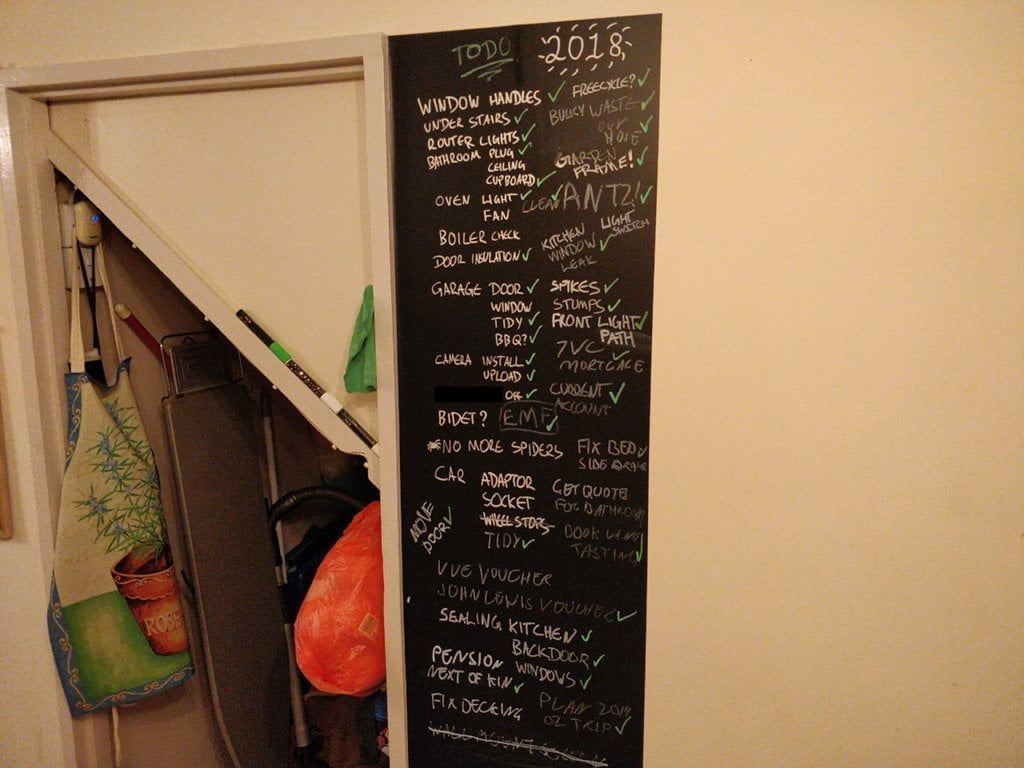 TODO 2018
WINDOW HANDLES ✓
UNDER STAIRS ✓
ROUTER LIGHTS ✓
BATHROOM PLUG ✓
CEILING
CUPBOARD ✓
OVEN LIGHT ✓
FAN
BOILER CHECK
DOOR INSULATION ✓
GARAGE DOOR ✓
WINDOW
TIDY ✓
BBQ? ✓
CAMERA INSTALL ✓
UPLOAD ✓
OFF ✓
BIDET?
NO MORE SPIDERS
CAR ADAPTOR
SOCKET
WHEEL STOPS
TIDY ✓
MOVE
DOOR ✓
VUE VOUCHER
JOHN LEWIS VOUCHER ✓
SEALING KITCHEN ✓
BACKDOOR ✓
WINDOWS ✓
PENSION
NEXT OF KIN ✓
FIX DECKING
WALL MOUNT
FREECYCLE? ✓
BULKY WASTE ✓
MOVE ✓
GARDEN
FRAME! ✓
CLEAN ✓ ANTZ! ✓
LIGHT
SWITCH
KITCHEN
WINDOW ✓
LEAK
SPIKES ✓
STUMPS ✓
FRONT LIGHT ✓
PATH
7VC ✓
MORTGAGE
CURRENT ✓
ACCOUNT
EMF ✓
FIX BED ✓
SIDE
GET QUOTE
FOR BATHROOM
BOOK WINE
TASTING ✓
PLAN 2019
OZ TRIP ✓
ROSE